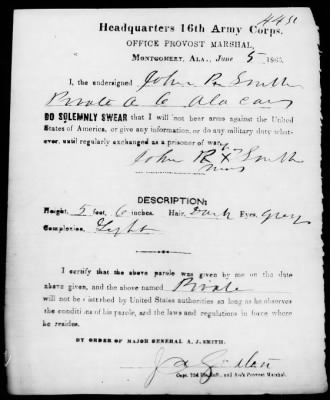 4451
Headquarters 16th Army Corps,
OFFICE PROVOST MARSHAL,
MONTGOMERY, ALA., June 5 1865.
I, the undersigned John R Smith
Private A 6 Ala Cav
DO SOLEMNLY SWEAR that I will not bear arms against the United
States of America, or give any information, or do any military duty what-
ever, until regularly exchanged as a prisoner of war.
his
John R X Smith
mark
DESCRIPTION:
Height, 5 feet, 6 inches. Hair, Dark Eyes, Gray
Complexion, Light
I certify that the above parole was given by me on the date
above given, and the above named Private
will not be disturbed by United States authorities so long as he observes
the conditions of his parole, and the laws and regulations in force where
he resides.
BY ORDER OF MAJOR GENERAL A. J. SMITH.
Capt. Ills. Inft., and Ass't Provost Marshal.